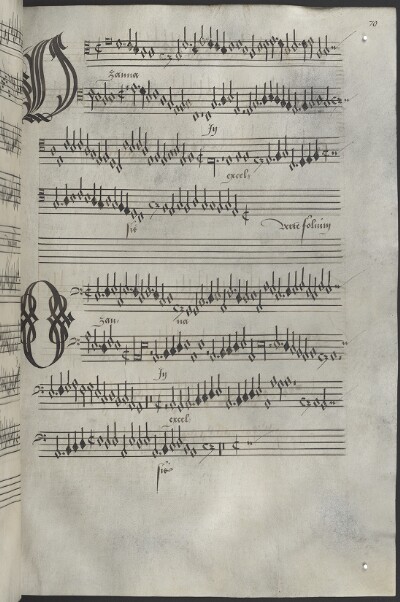 70
Ozanna
Jn
excel-
sis
Verte folium
Ozan- na
Jn
excel
sis